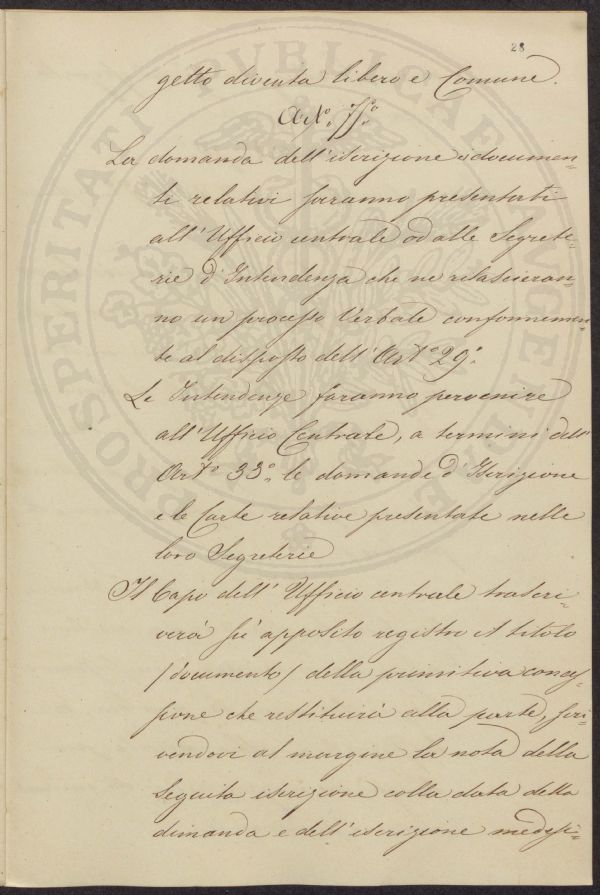 28
getto diventa libero e Comune.
Art.º 77.º
La domanda dell'iscrizione i documen-
ti relativi saranno presentati
all'Ufficio centrale od alle Segrete-
rie d'Intendenza che ne rilascieran-
no un processo Verbale conformemen-
te al disposto dell'Art.º 29.º
Le Intendenze faranno pervenire
all'Ufficio Centrale, a termini dell'
Art.º 33.º, le domande d'Iscrizione
e le Carte relative presentate nelle
loro Segreterie
Il Capo dell'Ufficio centrale trascri-
verà su apposito registro il titolo
/documento/ della primitiva conces-
sione che restituirà alla parte, scri-
vendovi al margine la nota della
seguita iscrizione colla data della
dimanda e dell'iscrizione medesi-
PROSPERITATI PUBLICAE AUGENDAE